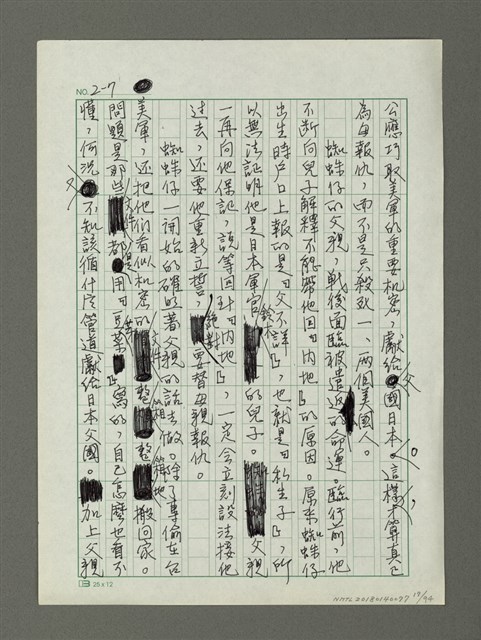 NO. 2-7
公應巧取美軍的重要机密，獻給父國日本。這樣才算真正
為母報仇，而不是只殺死一、兩個美國人。
蜘蛛仔的父親，戰後面臨被遣返的命運。臨行前，他
不斷向兒子解釋不能帶他回「內地」的原因。原來蜘蛛仔
出生時戶口上報的是「父不詳」，也就是「私生子」，所
以無法証明他是日本軍官鈴木的兒子。父親
一再向他保証，說等回到「內地」，一定会立刻設法接他
過去，还要他重新立誓，絕對要替母親報仇。
蜘蛛仔一開始的確照著父親的話去做。除了專偷在台
美軍，还把他們看似机密的文件整箱整箱地搬回家。
問題是那些文件都是用「豆菜」寫的，自己怎麼也看不
懂，何況又不知該循什麼管道獻給日本父國。加上父親
25x12
NMTL20180140077 17/94